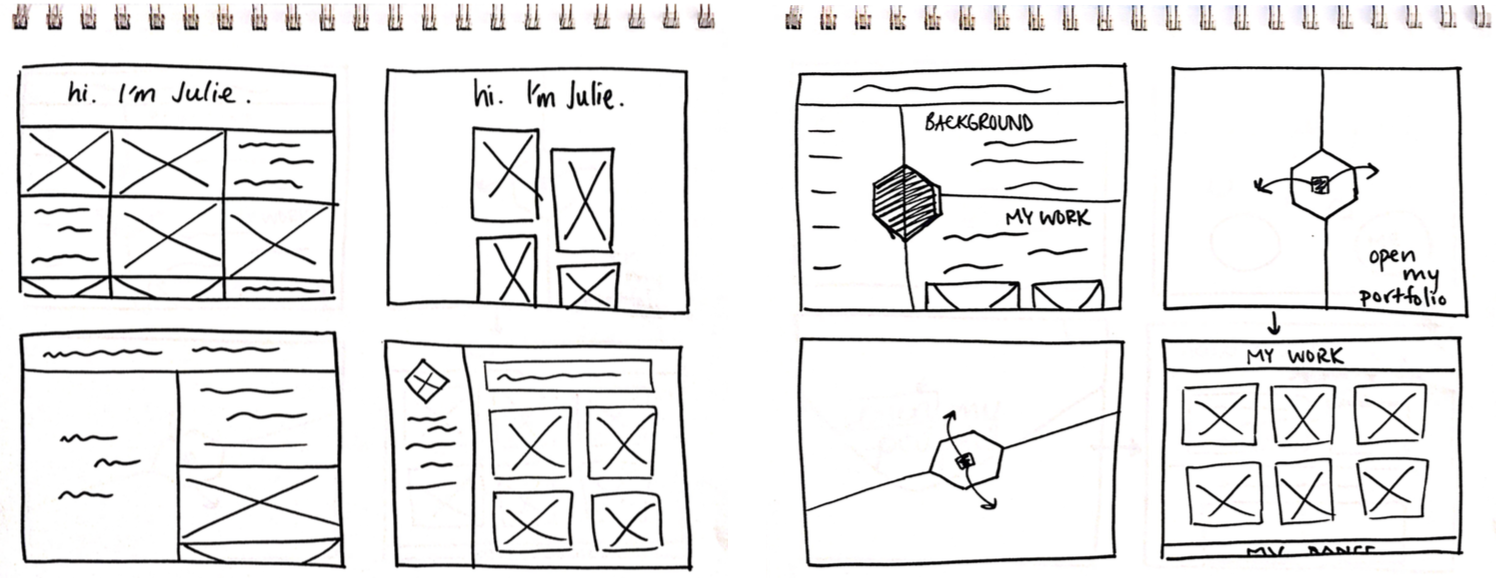 hi. I'm Julie.
hi. I'm Julie.
BACKGROUND
MY WORK
open
my
portfolio
MY WORK
MY